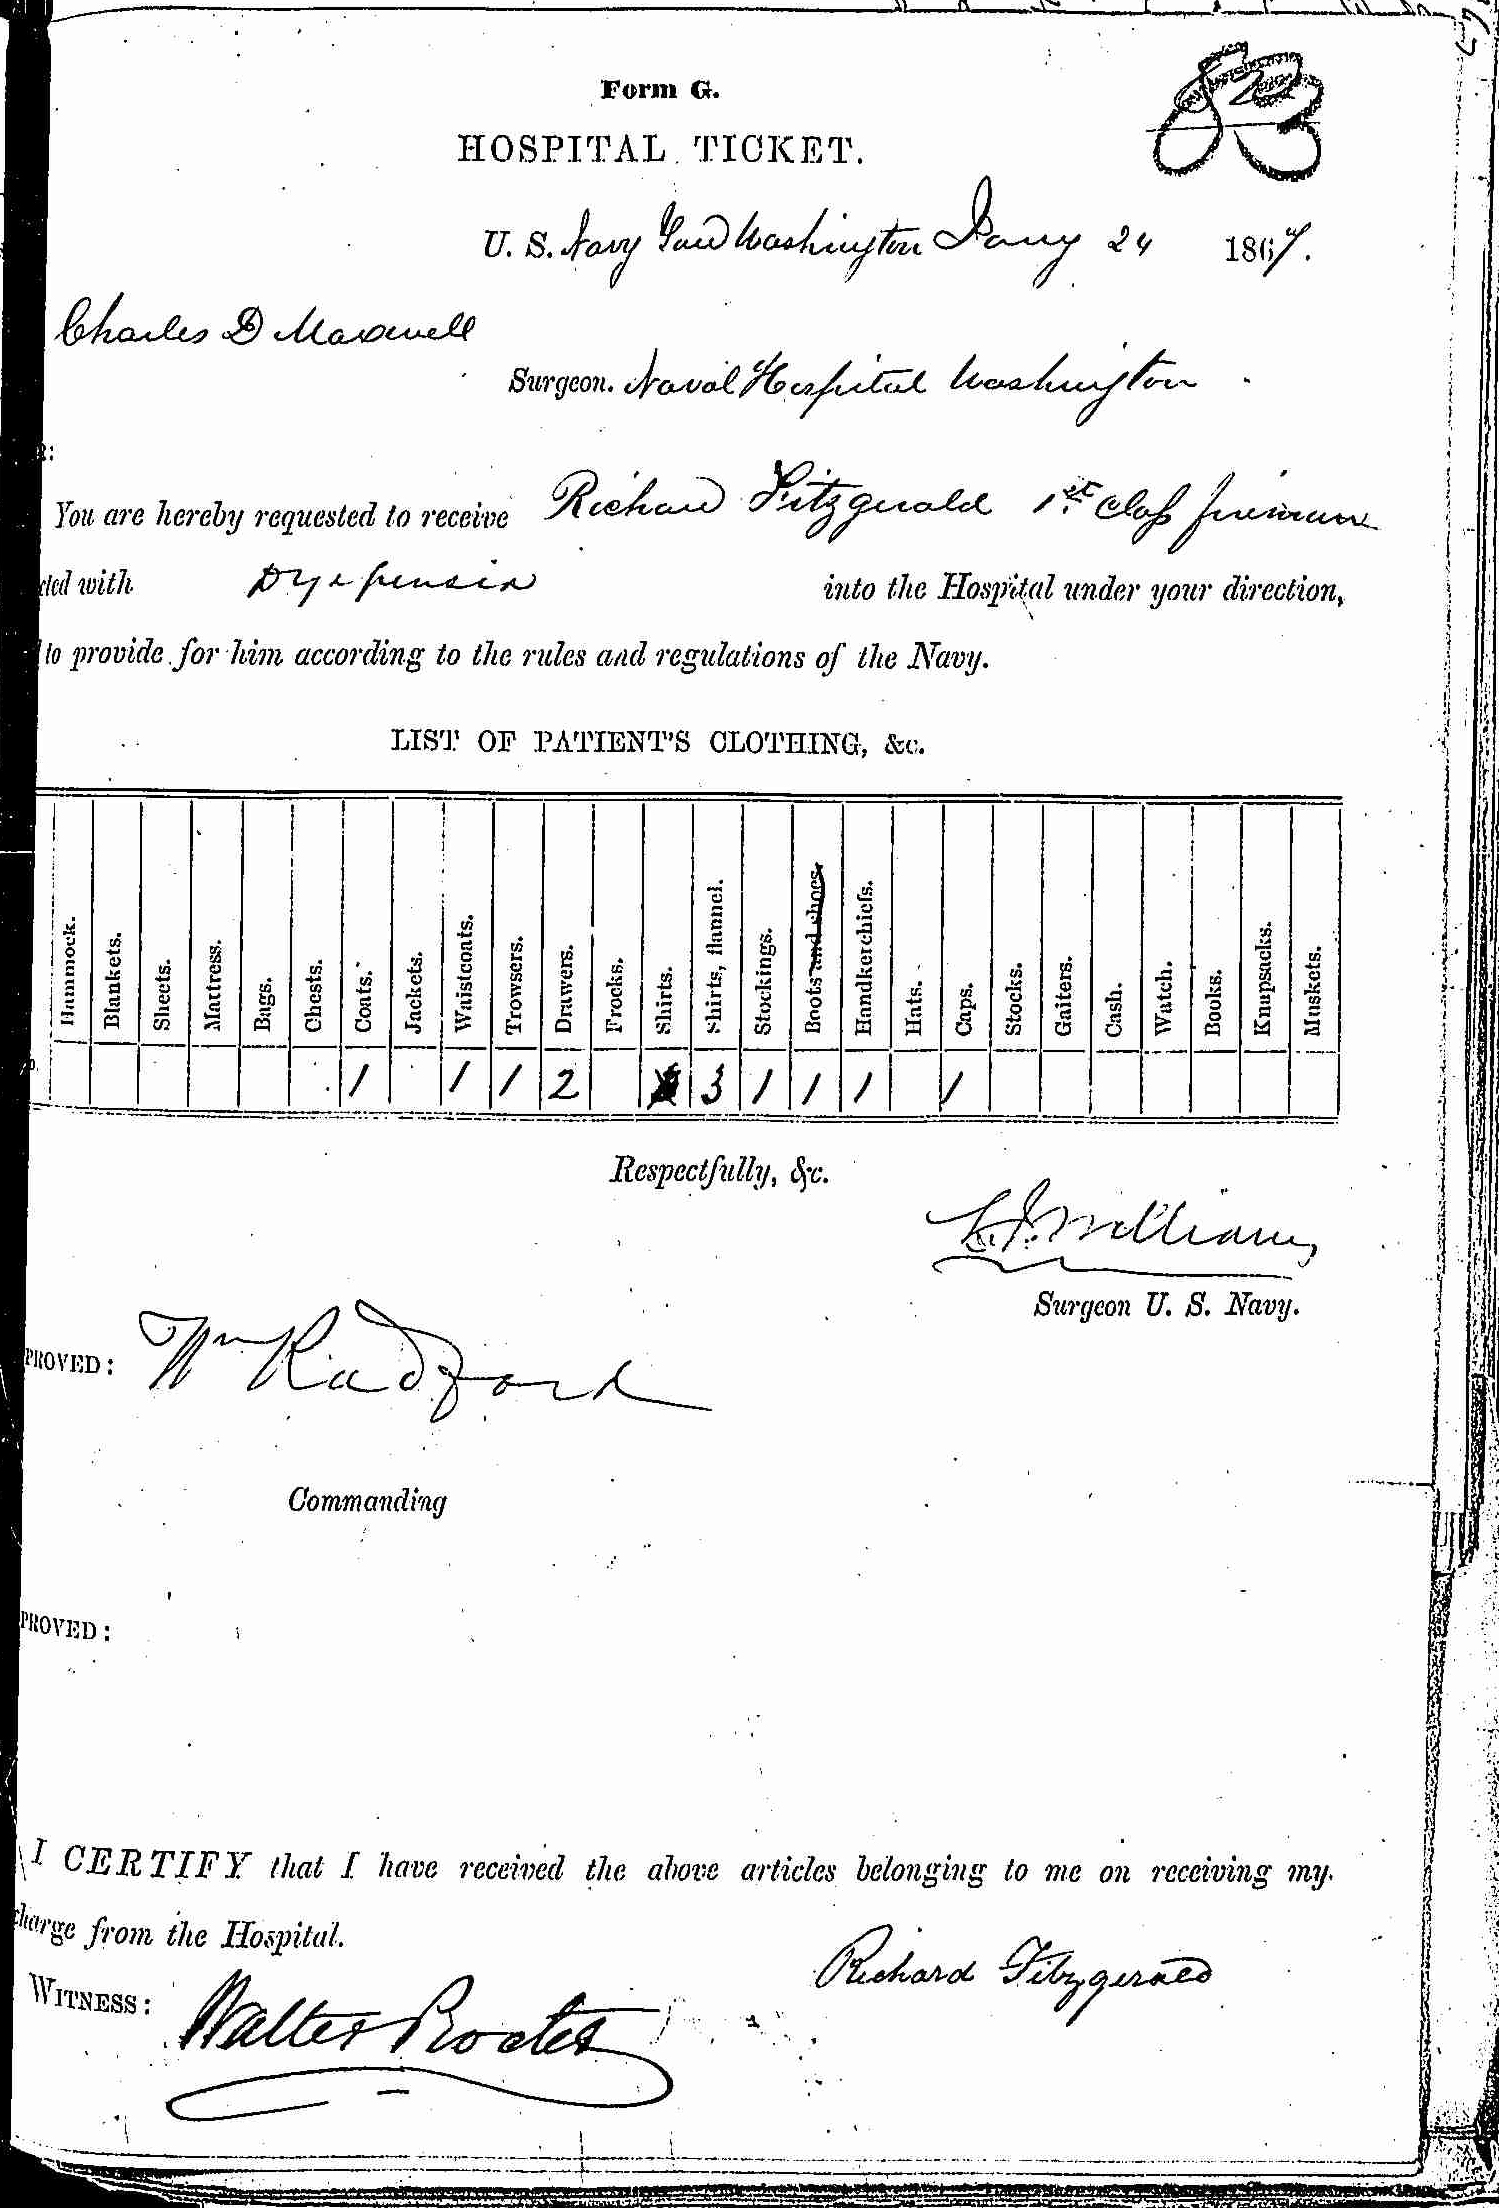 Form G.
83
HOSPITAL TICKET.
U. S. Navy Yard Washington Jany 24 1867.
Charles D Maxwell
Surgeon. Naval Hospital Washington
R:
You are hereby requested to receive Richard Fitzgerald 1st Class fireman
cted with Dyspepsia into the Hospital under your direction,
to provide for him according to the rules and regulations of the Navy.
LIST OF PATIENT'S CLOTHING, &c.
Hammock. Blankets. Sheets. Mattress. Bags. Chests. Coats. Jackets. Waistcoats. Trowsers. Drawers. Frocks. Shirts. Shirts, flannel. Stockings. Boots and shoes. Handkerchiefs. Hats. Caps. Stocks. Gaiters. Cash. Watch. Books. Knapsacks. Muskets.
1 1 1 2 3 1 1 1 1
Respectfully, &c.
Williams
Surgeon U. S. Navy.
PROVED: Wm Radford
Commanding
PROVED:
I CERTIFY that I have received the above articles belonging to me on receiving my
charge from the Hospital.
Richard Fitzgerald
WITNESS: Walter